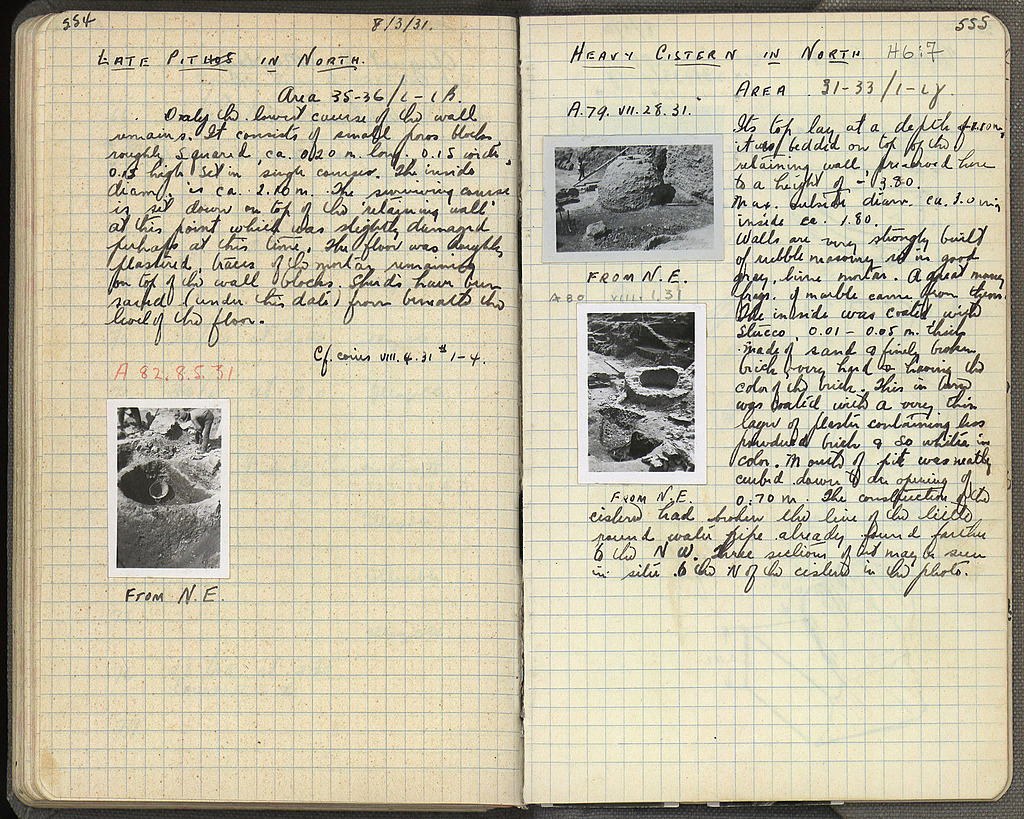 554
8/3/31.
LATE PITHOS IN NORTH.
Area 35-36/
Only the lowest course of the wall
remains. It consists of small poros blocks
roughly squared, ca. 0.20 m. long, 0.15 wide,
0.15 high set in single courses. The inside
diam. is ca. 2.10 m. The surviving course
is set down on top of the 'retaining wall'
at this point which was slightly damaged
perhaps at this time. The floor was
plastered, traces of the mortar remaining
on top of the wall blocks. Sherds have been
saved (under this date) from beneath the
level of the floor.
Cf. coins VIII.4.31 # 1-4.
A 82. 8.5.31
FROM N.E.
555
HEAVY CISTERN IN NORTH H6:7
AREA 31-33/
A.79. VII.28.31.
Its top lay at a depth of
it was bedded on top of the
retaining wall, preserved here
to a height of -3.80.
Max. outside diam. ca. 3.0 m
inside ca. 1.80.
Walls are very strongly built
of rubble masonry set in good
grey lime mortar. A great many
frags. of marble came from them.
The inside was coated with
stucco, 0.01 - 0.05 m. thick
made of sand & finely broken
brick, very hard & having the
color of the brick. This in turn
was coated with a very thin
layer of plaster containing less
powdered brick & so whiter in
color. Mouth of pit was neatly
curbed down to an opening of
0.70 m. The construction of the
cistern had broken the line of the little
round water pipe already found farther
to the N W. Three sections of it may be seen
in situ to the N of the cistern in the photo.
FROM N.E.
A 80 VIII.1.31
FROM N.E.